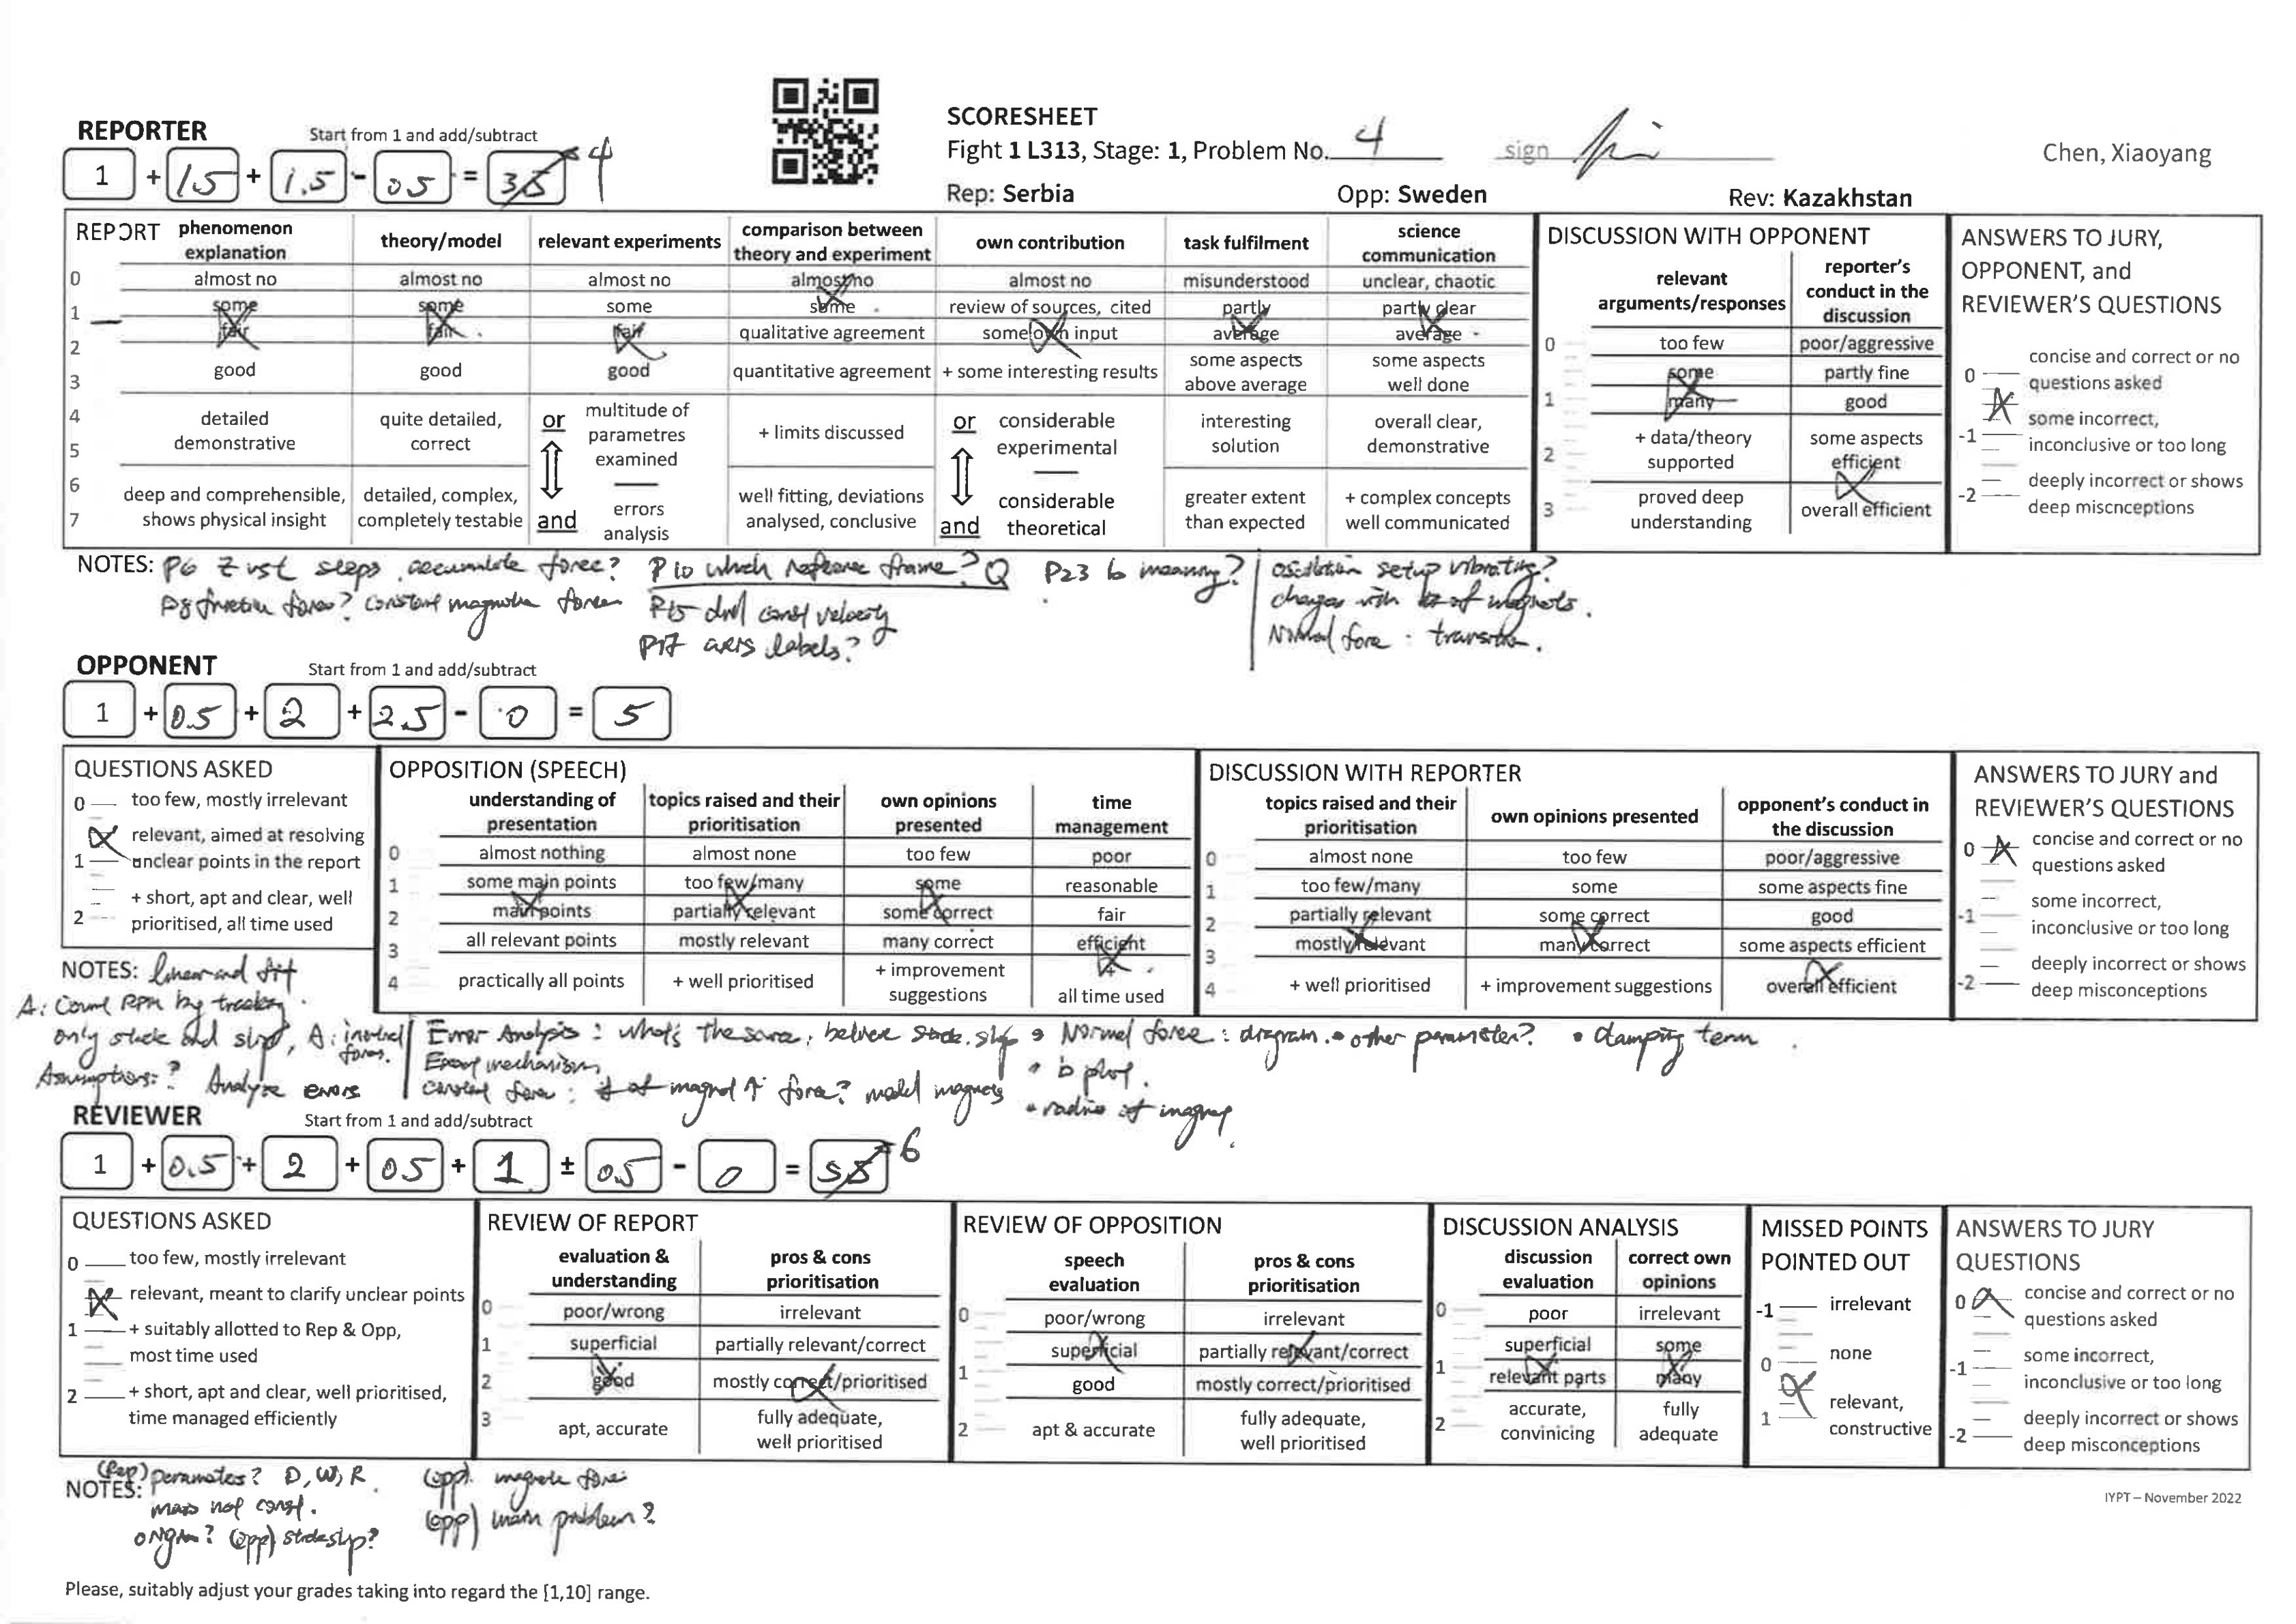 SCORESHEET
Fight 1 L313, Stage: 1, Problem No. 4 sign
Chen, Xiaoyang
Rep: Serbia Opp: Sweden Rev: Kazakhstan
REPORTER Start from 1 and add/subtract
1 + 1.5 + 1.5 - 0.5 = 3.5 4
REPORT
phenomenon explanation
theory/model
relevant experiments
comparison between theory and experiment
own contribution
task fulfilment
science communication
0 almost no almost no almost no almost no almost no misunderstood unclear, chaotic
1 some some some some review of sources, cited partly partly clear
2 fair fair fair qualitative agreement some own input average average
3 good good good quantitative agreement + some interesting results some aspects above average some aspects well done
4
5
detailed demonstrative
quite detailed, correct
or multitude of parametres examined
+ limits discussed
or considerable experimental
interesting solution
overall clear, demonstrative
6
7
deep and comprehensible, shows physical insight
detailed, complex, completely testable
and errors analysis
well fitting, deviations analysed, conclusive
and considerable theoretical
greater extent than expected
+ complex concepts well communicated
DISCUSSION WITH OPPONENT
relevant arguments/responses
reporter's conduct in the discussion
0 too few poor/aggressive
some partly fine
1 many good
2 + data/theory supported some aspects efficient
3 proved deep understanding overall efficient
ANSWERS TO JURY, OPPONENT, and REVIEWER'S QUESTIONS
0 concise and correct or no questions asked
-1 some incorrect, inconclusive or too long
-2 deeply incorrect or shows deep miscnceptions
NOTES: P6 steps, accumulate force? P10 which reference frame? Q P23 b meaning? oscillation setup vibrating?
P8 friction force? Constant magnetic force P15 const velocity changes with of magnets.
P17 axis labels? Normal force : transition.
OPPONENT Start from 1 and add/subtract
1 + 0.5 + 2 + 2.5 - 0 = 5
QUESTIONS ASKED
0 too few, mostly irrelevant
1 relevant, aimed at resolving unclear points in the report
2 + short, apt and clear, well prioritised, all time used
OPPOSITION (SPEECH)
understanding of presentation
topics raised and their prioritisation
own opinions presented
time management
0 almost nothing almost none too few poor
1 some main points too few/many some reasonable
2 main points partially relevant some correct fair
3 all relevant points mostly relevant many correct efficient
4 practically all points + well prioritised + improvement suggestions + all time used
DISCUSSION WITH REPORTER
topics raised and their prioritisation
own opinions presented
opponent's conduct in the discussion
0 almost none too few poor/aggressive
1 too few/many some some aspects fine
2 partially relevant some correct good
3 mostly relevant many correct some aspects efficient
4 + well prioritised + improvement suggestions overall efficient
ANSWERS TO JURY and REVIEWER'S QUESTIONS
0 concise and correct or no questions asked
-1 some incorrect, inconclusive or too long
-2 deeply incorrect or shows deep misconceptions
NOTES: linear and fit
A: Count RPM by tracking.
only stick and slip, A: inertial forces.
Assumptions: ? Analyze errors
Error Analysis : what's the between stick. slip • Normal force : diagram. • other parameter? • damping term
mechanism • b plot.
constant force : # of magnet ↑ force? model magnets • radius of magnet
REVIEWER Start from 1 and add/subtract
1 + 0.5 + 2 + 0.5 + 1 ± 0.5 - 0 = 5.5 6
QUESTIONS ASKED
0 too few, mostly irrelevant
relevant, meant to clarify unclear points
1 + suitably allotted to Rep & Opp, most time used
2 + short, apt and clear, well prioritised, time managed efficiently
REVIEW OF REPORT
evaluation & understanding
pros & cons prioritisation
0 poor/wrong irrelevant
1 superficial partially relevant/correct
2 good mostly correct/prioritised
3 apt, accurate fully adequate, well prioritised
REVIEW OF OPPOSITION
speech evaluation
pros & cons prioritisation
0 poor/wrong irrelevant
superficial partially relevant/correct
1 good mostly correct/prioritised
2 apt & accurate fully adequate, well prioritised
DISCUSSION ANALYSIS
discussion evaluation
correct own opinions
0 poor irrelevant
superficial some
1 relevant parts many
2 accurate, convinicing fully adequate
MISSED POINTS POINTED OUT
-1 irrelevant
0 none
1 relevant, constructive
ANSWERS TO JURY QUESTIONS
0 concise and correct or no questions asked
-1 some incorrect, inconclusive or too long
-2 deeply incorrect or shows deep misconceptions
NOTES: (Rep) parameters? D, W, R. (opp). magnetic force
mass not const. (opp) main problem?
origin? (opp) stick slip?
IYPT – November 2022
Please, suitably adjust your grades taking into regard the [1,10] range.